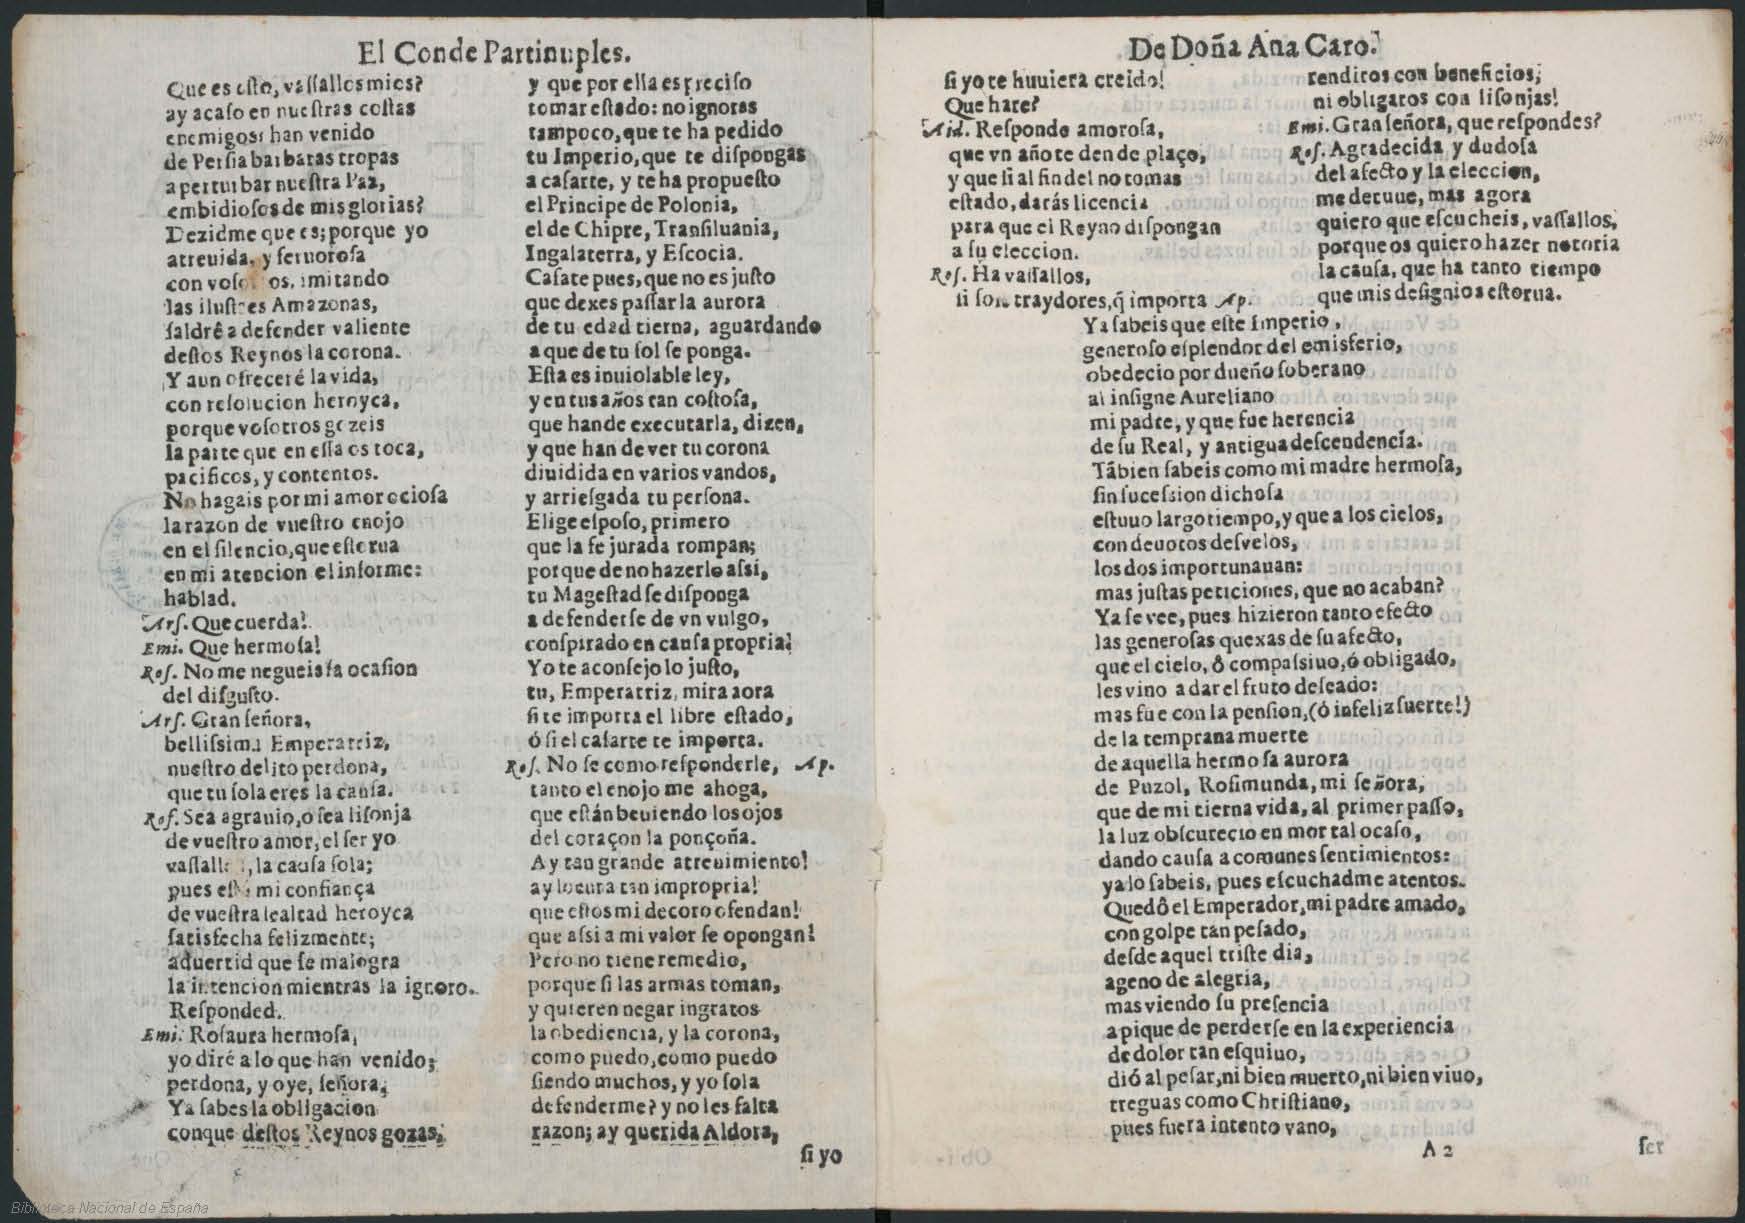 El Conde Partinuples.
Que es esto, vassallos mios?
ay acaso en nuestras costas
enemigos? han venido
de Persia barbaras tropas
a perturbar nuestra Paz,
embidiosos de mis glorias?
Dezidme que es; porque yo
atreuida, y feruorosa
con vosotros, imitando
las ilustres Amazonas,
saldrê a defender valiente
destos Reynos la corona.
Y aun ofreceré la vida,
con resolucion heroyca,
porque vosotros gozeis
la parte que en ella os toca,
pacificos, y contentos.
No hagais por mi amor ociosa
la razon de vuestro enojo
en el silencio, que estorua
en mi atencion el informe:
hablad.
Ars. Que cuerda!
Emi. Que hermosa!
Ros. No me negueis la ocasion
del disgusto.
Ars. Gran señora,
bellissima Emperatriz,
nuestro delito perdona,
que tu sola eres la causa.
Ros. Sea agrauio, o sea lisonja
de vuestro amor, el ser yo
vassallos, la causa sola;
pues està mi confiança
de vuestra lealtad heroyca
satisfecha felizmente;
aduertid que se malogra
la intencion mientras la ignoro.
Responded.
Emi. Rosaura hermosa,
yo diré a lo que han venido;
perdona, y oye, señora,
Ya sabes la obligacion
conque destos Reynos gozas,
y que por ella es preciso
tomar estado: no ignoras
tampoco, que te ha pedido
tu Imperio, que te dispongas
a casarte, y te ha propuesto
el Principe de Polonia,
el de Chipre, Transiluania,
Ingalaterra, y Escocia.
Casate pues, que no es justo
que dexes passar la aurora
de tu edad tierna, aguardando
a que de tu sol se ponga.
Esta es inuiolable ley,
y en tus años tan costosa,
que han de executarla, dizen,
y que han de ver tu corona
diuidida en varios vandos,
y arriesgada tu persona.
Elige esposo, primero
que la fe jurada rompan;
porque de no hazerlo assi,
tu Magestad se disponga
a defenderse de vn vulgo,
conspirado en causa propria!
Yo te aconsejo lo justo,
tu, Emperatriz, mira aora
si te importa el libre estado,
ó si el casarte te importa.
Ros. No se como responderle, Ap.
tanto el enojo me ahoga,
que están beuiendo los ojos
del coraçon la ponçoña.
Ay tan grande atreuimiento!
ay locura tan impropria!
que estos mi decoro ofendan!
que assi a mi valor se opongan!
Pero no tiene remedio,
porque si las armas toman,
y quieren negar ingratos
la obediencia, y la corona,
como puedo, como puedo
siendo muchos, y yo sola
defenderme? y no les falta
razon; ay querida Aldora,
si yo
De Doña Ana Caro.
si yo te huuiera creido!
Que hare?
Ald. Responde amorosa,
que vn año te den de plaço,
y que si al fin del no tomas
estado, darás licencia
para que el Reyno dispongan
a su eleccion.
Ros. Ha vassallos,
si son traydores, q̃ importa Ap.
rendiros con beneficios,
ni obligaros con lisonjas!
Emi. Gran señora, que respondes?
Ros. Agradecida y dudosa
del afecto y la eleccion,
me detuue, mas agora
quiero que escucheis, vassallos,
porque os quiero hazer notoria
la causa, que ha tanto tiempo
que mis designios estorua.
Ya sabeis que este Imperio,
generoso esplendor del emisferio,
obedecio por dueño soberano
al insigne Aureliano
mi padre, y que fue herencia
de su Real, y antigua descendencia.
Tãbien sabeis como mi madre hermosa,
sin sucession dichosa
estuuo largo tiempo, y que a los cielos,
con deuotos desvelos,
los dos importunauan:
mas justas peticiones, que no acaban?
Ya se vee, pues hizieron tanto efecto
las generosas quexas de su afecto,
que el cielo, ô compassiuo, ó obligado,
les vino a dar el fruto deseado:
mas fue con la pension, (ó infeliz suerte!)
de la temprana muerte
de aquella hermosa aurora
de Puzol, Rosimunda, mi señora,
que de mi tierna vida, al primer passo,
la luz obscurecio en mortal ocaso,
dando causa a comunes sentimientos:
ya lo sabeis, pues escuchadme atentos.
Quedô el Emperador, mi padre amado,
con golpe tan pesado,
desde aquel triste dia,
ageno de alegria,
mas viendo su presencia
a pique de perderse en la experiencia
de dolor tan esquiuo,
dió al pesar, ni bien muerto, ni bien viuo,
treguas como Christiano,
pues fuera intento vano,
A 2
ser
Biblioteca Nacional de España